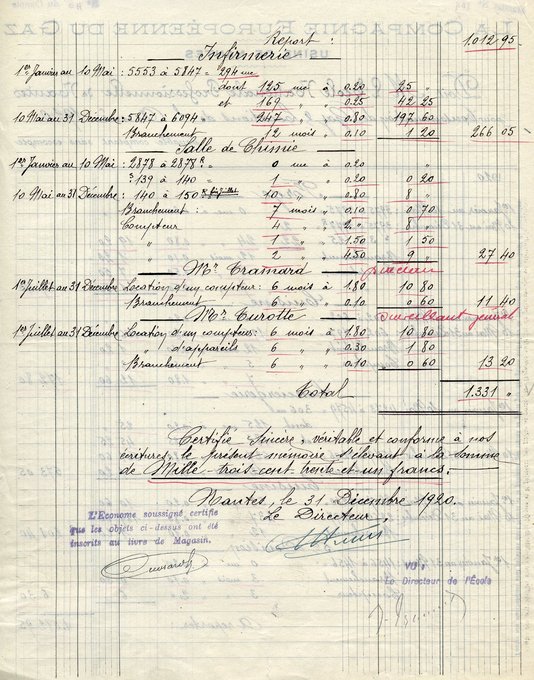 Report: 1.012 95
Infirmerie
1er Janvier au 10 Mai : 5553 à 5847 = 294 mc
dont 125 mc à 0.20 25 "
et 169 " 0.25 42 25
10 Mai au 31 Décembre : 5847 à 6094 = 247 " 0.80 197 60
Branchement 12 mois à 0.10 1 20 266 05
Salle de Chimie
1er Janvier au 10 Mai : 2878 à 2878 = 0 mc à 0.20 "
139 à 140 = 1 " à 0.20 0 20
10 Mai au 31 Décembre : 140 à 150 10 " à 0.80 8 "
Branchement : 7 mois à 0.10 0 70
Compteur 4 " 2 " 8 "
" 1 " 1.50 1 50
" 2 " 4.50 9 " 27 40
Mr Tramard
1er Juillet au 31 Décembre Location d'un compteur : 6 mois à 1.80 10 80
Branchement 6 " à 0.10 0 60 11 40
Mr Turotte surveillant général
1er Juillet au 31 Décembre Location d'un compteur : 6 mois à 1.80 10 80
" d'appareils 6 " à 0.30 1 80
Branchement 6 " à 0.10 0 60 13 20
Total 1.331 "
Certifié sincère, véritable et conforme à nos
écritures, le présent mémoire s'élevant à la somme
de Mille trois cent trente et un francs.
Nantes, le 31 Décembre 1920.
Le Directeur,
L'Econome soussigné certifie
que les objets ci-dessus ont été
inscrits au livre de Magasin.
VU :
Le Directeur de l'École